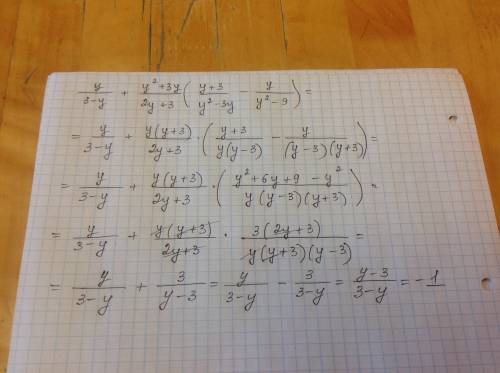 y/(3-y) + (y²+3y)/(2y+3) ((y+3)/(y²-3y) - y/(y²-9)) =
= y/(3-y) + y(y+3)/(2y+3) · ((y+3)/(y(y-3)) - y/((y-3)(y+3))) =
= y/(3-y) + y(y+3)/(2y+3) · ((y²+6y+9-y²)/(y(y-3)(y+3))) =
= y/(3-y) + y(y+3)/(2y+3) · 3(2y+3)/(y(y+3)(y-3)) =
= y/(3-y) + 3/(y-3) = y/(3-y) - 3/(3-y) = (y-3)/(3-y) = -1